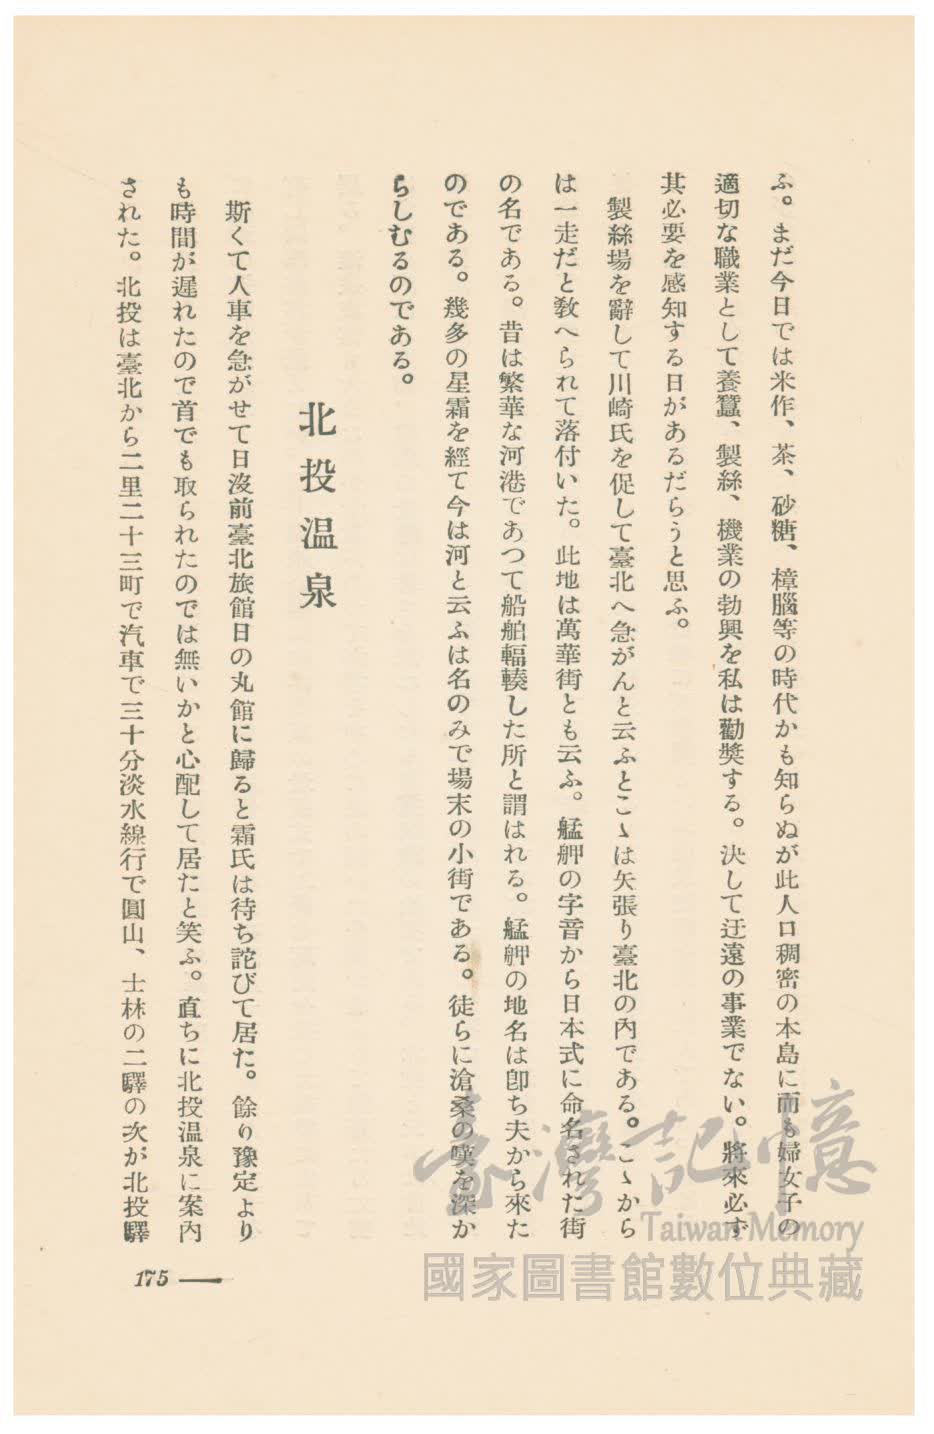 ふ。まだ今日では米作、茶、砂糖、樟腦等の時代かも知らぬが此人口稠密の本島に而も婦女子の
適切な職業として養蠶、製絲、機業の勃興を私は勸奬する。決して迂遠の事業でない。將來必ず
其必要を感知する日があるだらうと思ふ。
製絲場を辭して川崎氏を促して臺北へ急がんと云ふとこゝは矢張り臺北の內である。こゝから
は一走だと敎へられて落付いた。此地は萬華街とも云ふ。艋舺の字音から日本式に命名された街
の名である。昔は繁華な河港であつて船舶輻輳した所と謂はれる。艋舺の地名は卽ち夫から來た
のである。幾多の星霜を經て今は河と云ふは名のみで場末の小街である。徒らに滄桑の嘆を深か
らしむるのである。
北投温泉
斯くて人車を急がせて日沒前臺北旅館日の丸館に歸ると霜氏は待ち詫びて居た。餘り豫定より
も時間が遲れたので首でも取られたのでは無いかと心配して居たと笑ふ。直ちに北投温泉に案內
された。北投は臺北から二里二十三町で汽車で三十分淡水線行で圓山、士林の二驛の次が北投驛
175
臺灣記憶
Taiwan Memory
國家圖書館數位典藏